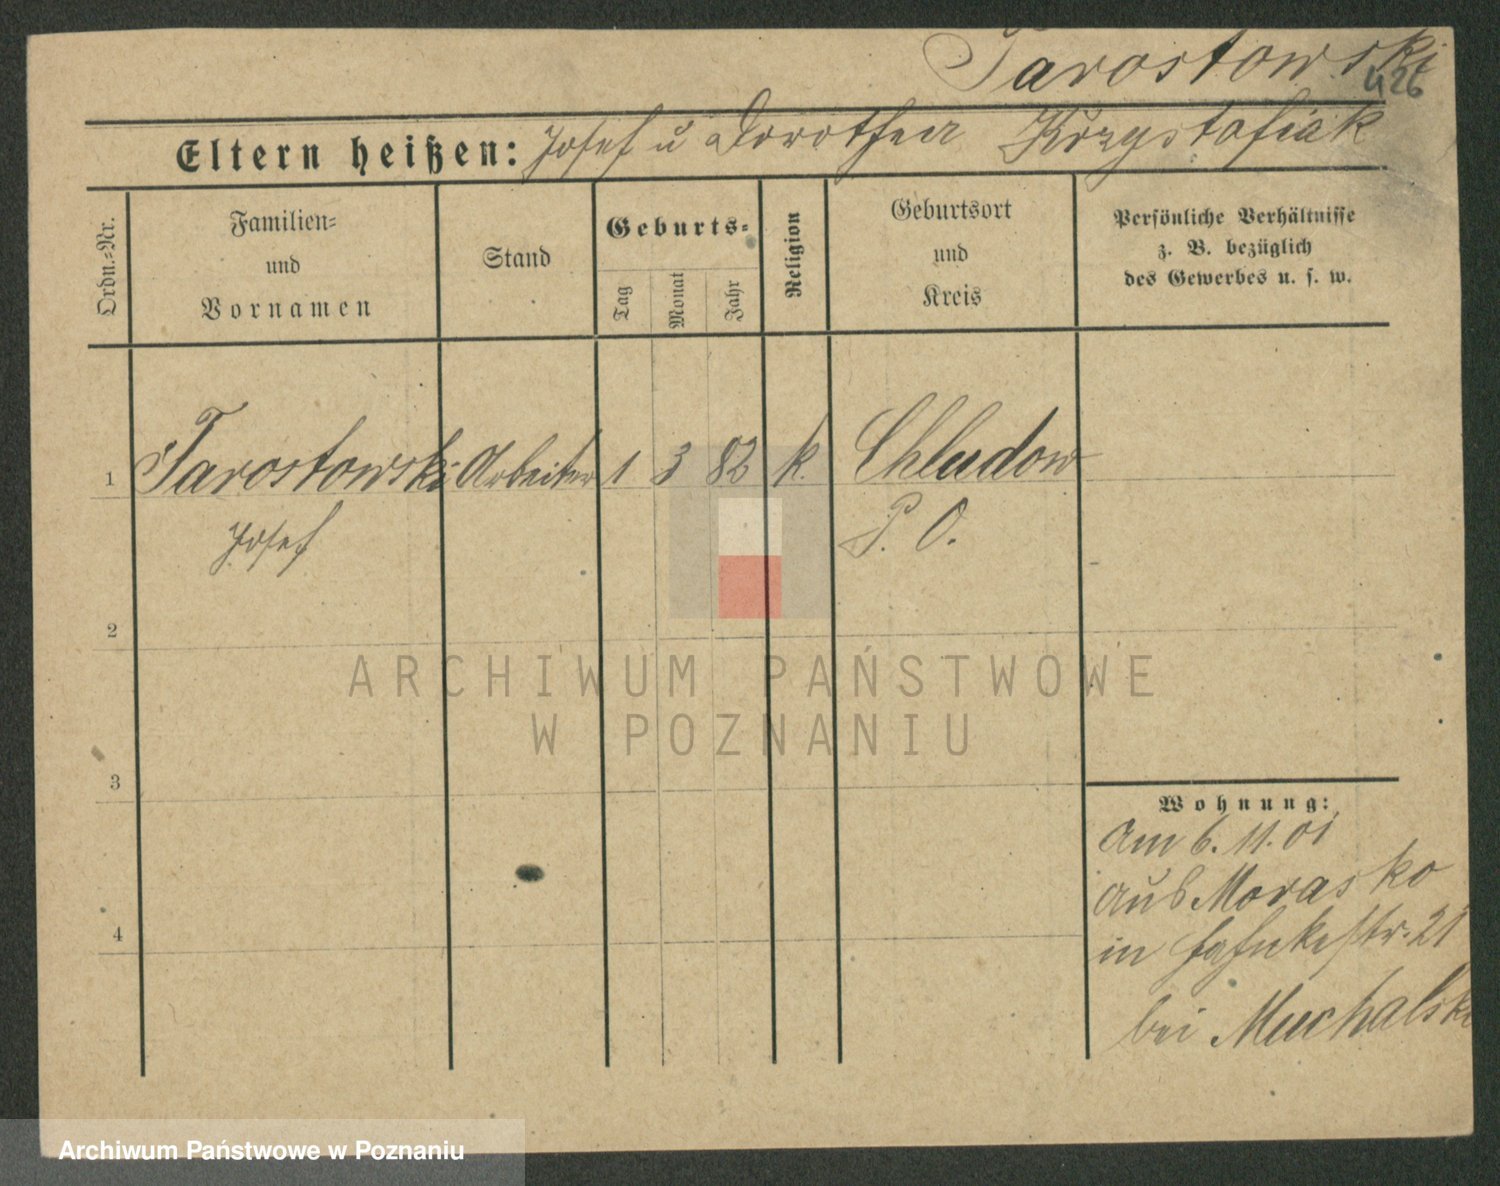 Tarostowski
426
Eltern heißen: Josef u Dorothea Krzystofiak
Ordn.-Nr.
Familien-
und
Vornamen
Stand
Geburts-
Tag
Monat
Jahr
Religion
Geburtsort
und
Kreis
Persönliche Verhältnisse
z. B. bezüglich
des Gewerbes u. s. w.
1 Tarostowski Arbeiter 1 3 82 k. Chludow
Josef P. O.
2
ARCHIWUM PAŃSTWOWE
W POZNANIU
3
Wohnung:
Am 6. 11. 01
aus Morasko
4
in str. 21
bei Muchalski
Archiwum Państwowe w Poznaniu